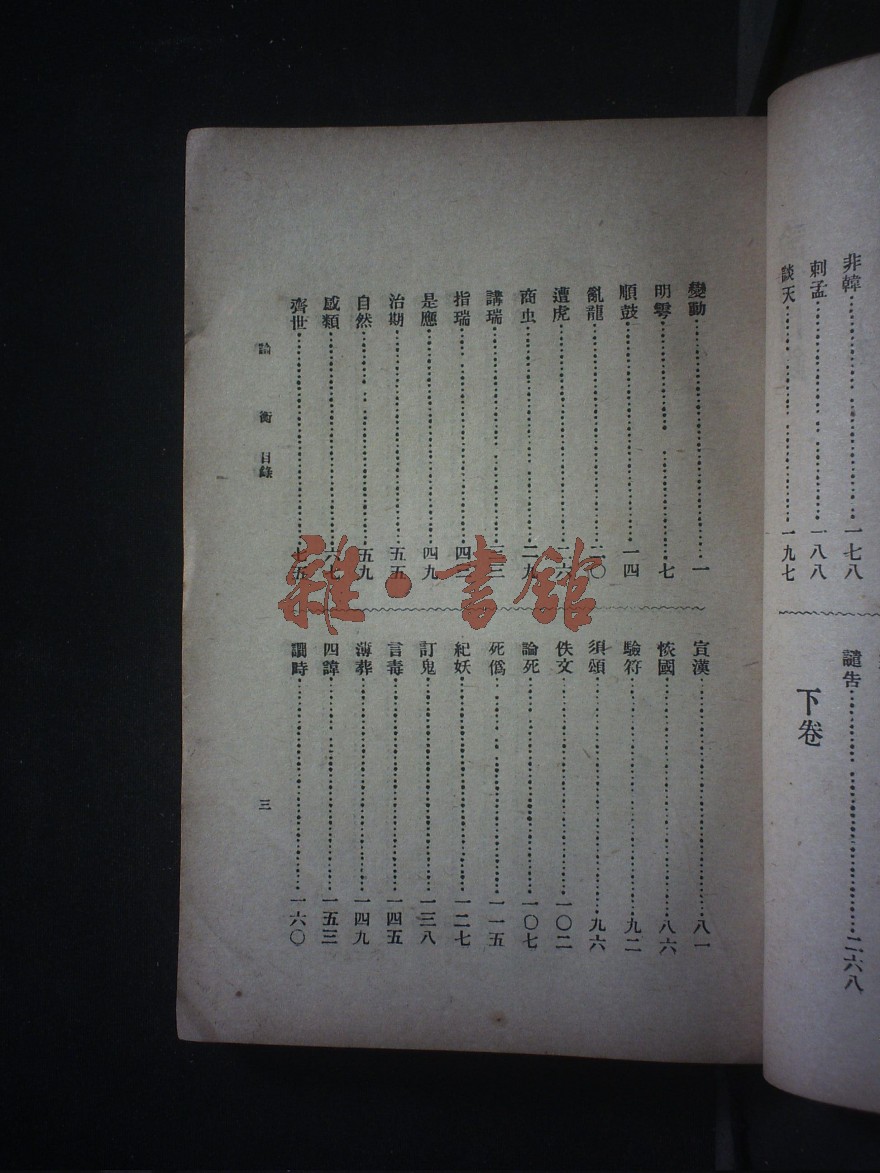 非韓 一七八
刺孟 一八八
談天 一九七
譴告 二六八
下卷
變動 一
明雩 七
順鼓 一四
亂龍 二〇
遭虎 二六
商虫 二九
講瑞 三三
指瑞 四三
是應 四九
治期 五五
自然 五九
感類 六七
齊世 七五
宣漢 八一
恢國 八六
驗符 九二
須頌 九六
佚文 一〇二
論死 一〇七
死僞 一一五
紀妖 一二七
訂鬼 一三八
言毒 一四五
薄葬 一四九
四諱 一五三
譋時 一六〇
論衡 目錄
三
雜·書館